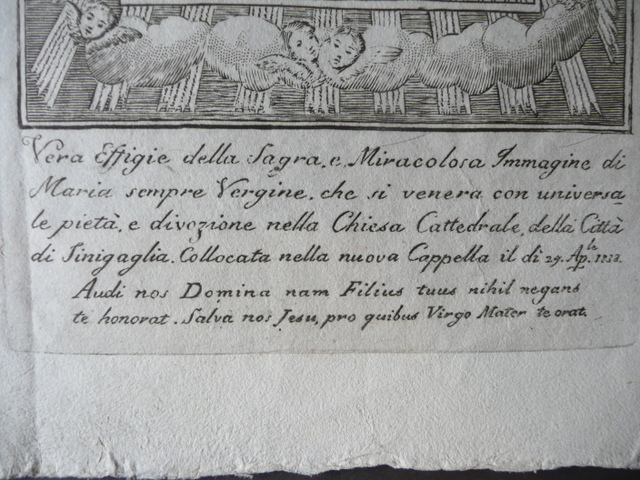 Vera Effigie della Sagra, e, Miracolosa Immagine di
Maria sempre Vergine, che si venera con universa
le pietà, e divozione nella Chiesa Cattedrale, della Città
di Sinigaglia. Collocata nella nuova Cappella il dì 29. Aple
Audi nos Domina nam Filius tuus nihil negans
te honorat. Salva nos Jesu, pro quibus Virgo Mater te orat.